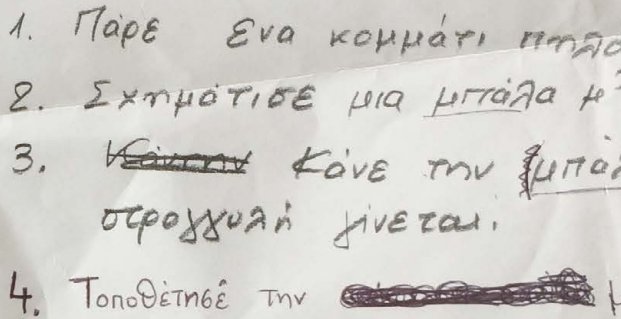 1. Πάρε ενα κομμάτι πηλο
2. Σχημάτισε μια μπάλα μ
3. Κάνε την μπάλ
στρογγυλή γίνεται.
4. Τοποθέτησε την